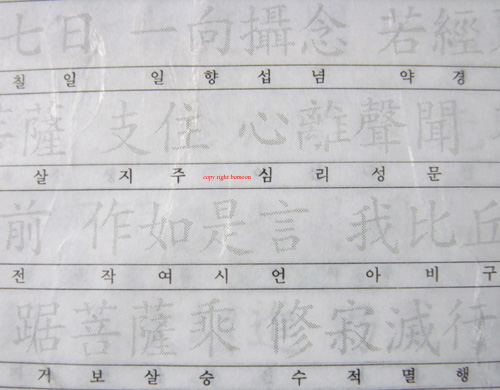 七日 一向攝念 若經
칠 일 일 향 섭 념 약 경
菩薩 支住 心離聲聞
살 지 주 심 리 성 문
copy right bomoon
前 作如是言 我比丘
전 작 여 시 언 아 비 구
踞菩薩乘 修寂滅行
거 보 살 승 수 적 멸 행